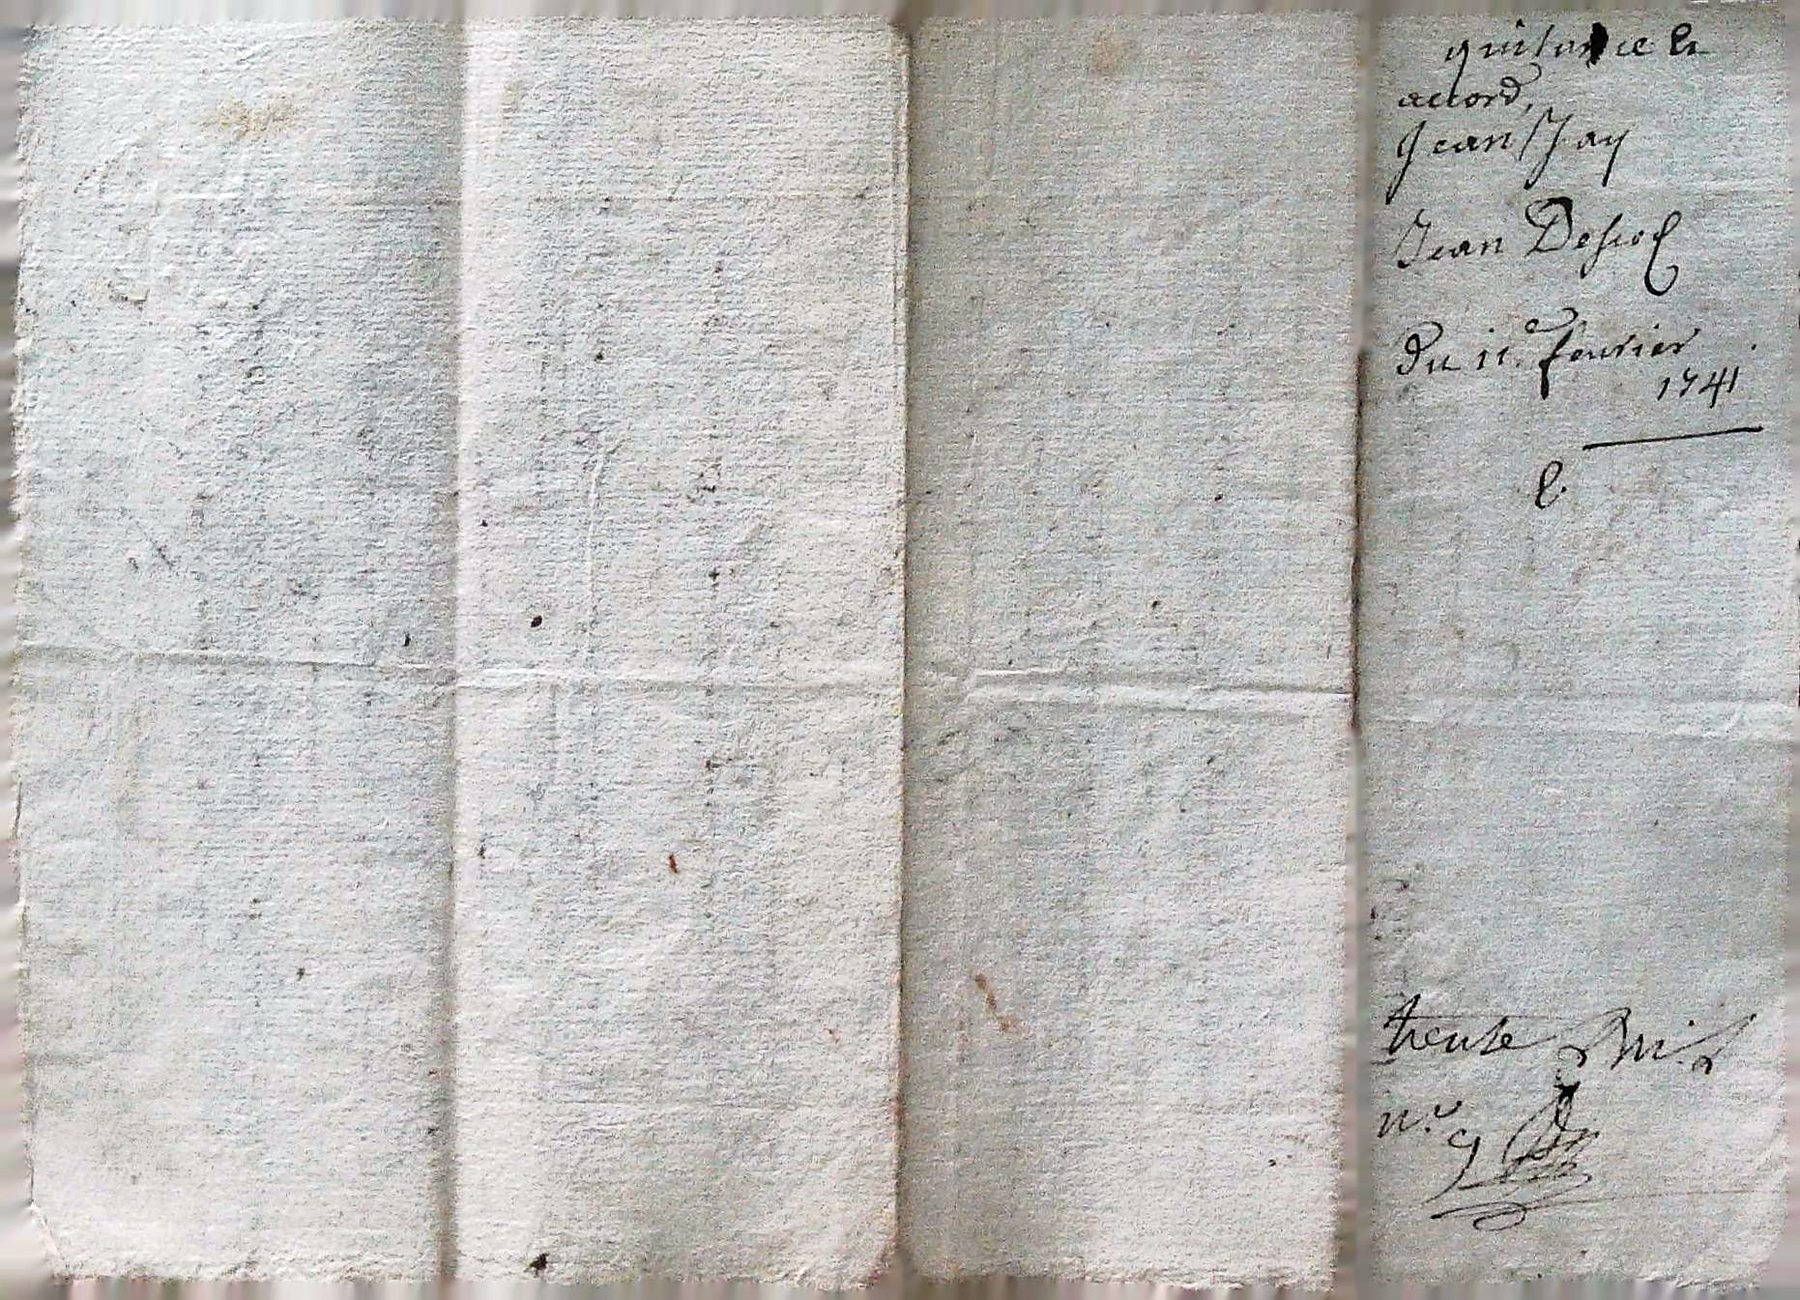 quitance et
accord,
Jean Jay
Jean
du 11e. feurier
1741
trente
n.e 9